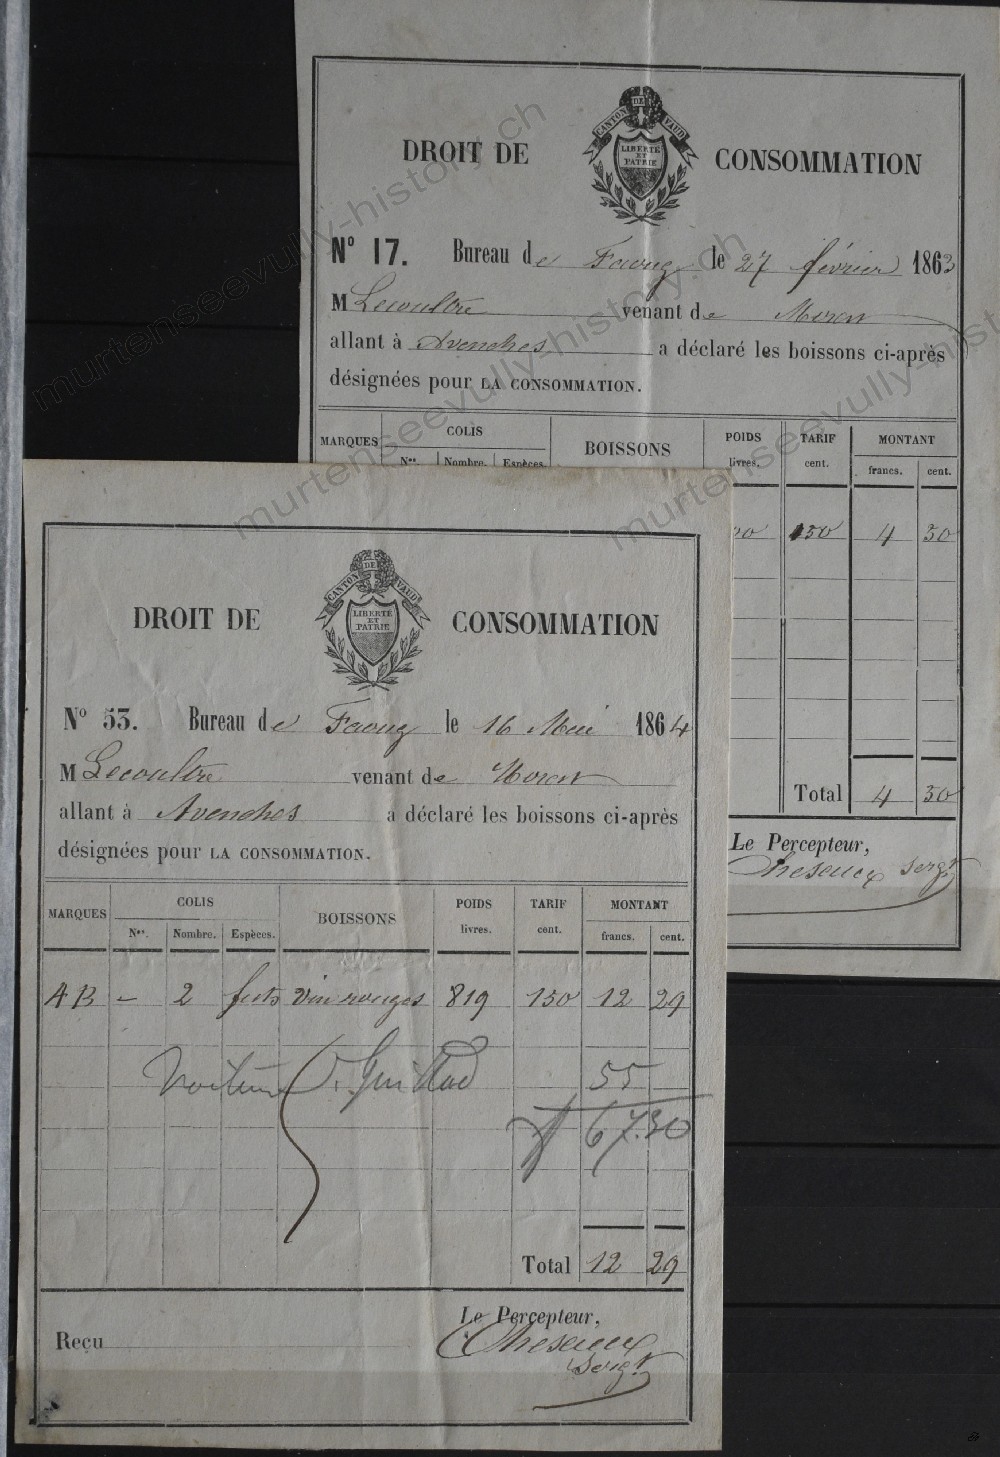 CANTON DE VAUD
LIBERTÉ
ET
PATRIE
DROIT DE CONSOMMATION
Nº 17. Bureau de Faoug le 27 février 1863
M Lecoultre venant de Morat
allant à Avenches a déclaré les boissons ci-après
désignées pour LA CONSOMMATION.
MARQUES COLIS BOISSONS POIDS livres. TARIF cent. MONTANT
Nos. Nombre. Espèces. francs. cent.
150 4 50
Total 4 50
Le Percepteur,
Chesaux sergt
CANTON DE VAUD
LIBERTÉ
ET
PATRIE
DROIT DE CONSOMMATION
Nº 53. Bureau de Faoug le 16 Mai 1864
M Lecoultre venant de Morat
allant à Avenches a déclaré les boissons ci-après
désignées pour LA CONSOMMATION.
MARQUES COLIS BOISSONS POIDS livres. TARIF cent. MONTANT
Nos. Nombre. Espèces. francs. cent.
AB – 2 futs vin rouges 819 150 12 29
Voiture Guillod 55
67.30
Total 12 29
Le Percepteur,
Reçu
Chesaux
sergt
murtenseevully-history.ch
murtenseevully-history.ch
murtenseevully-history